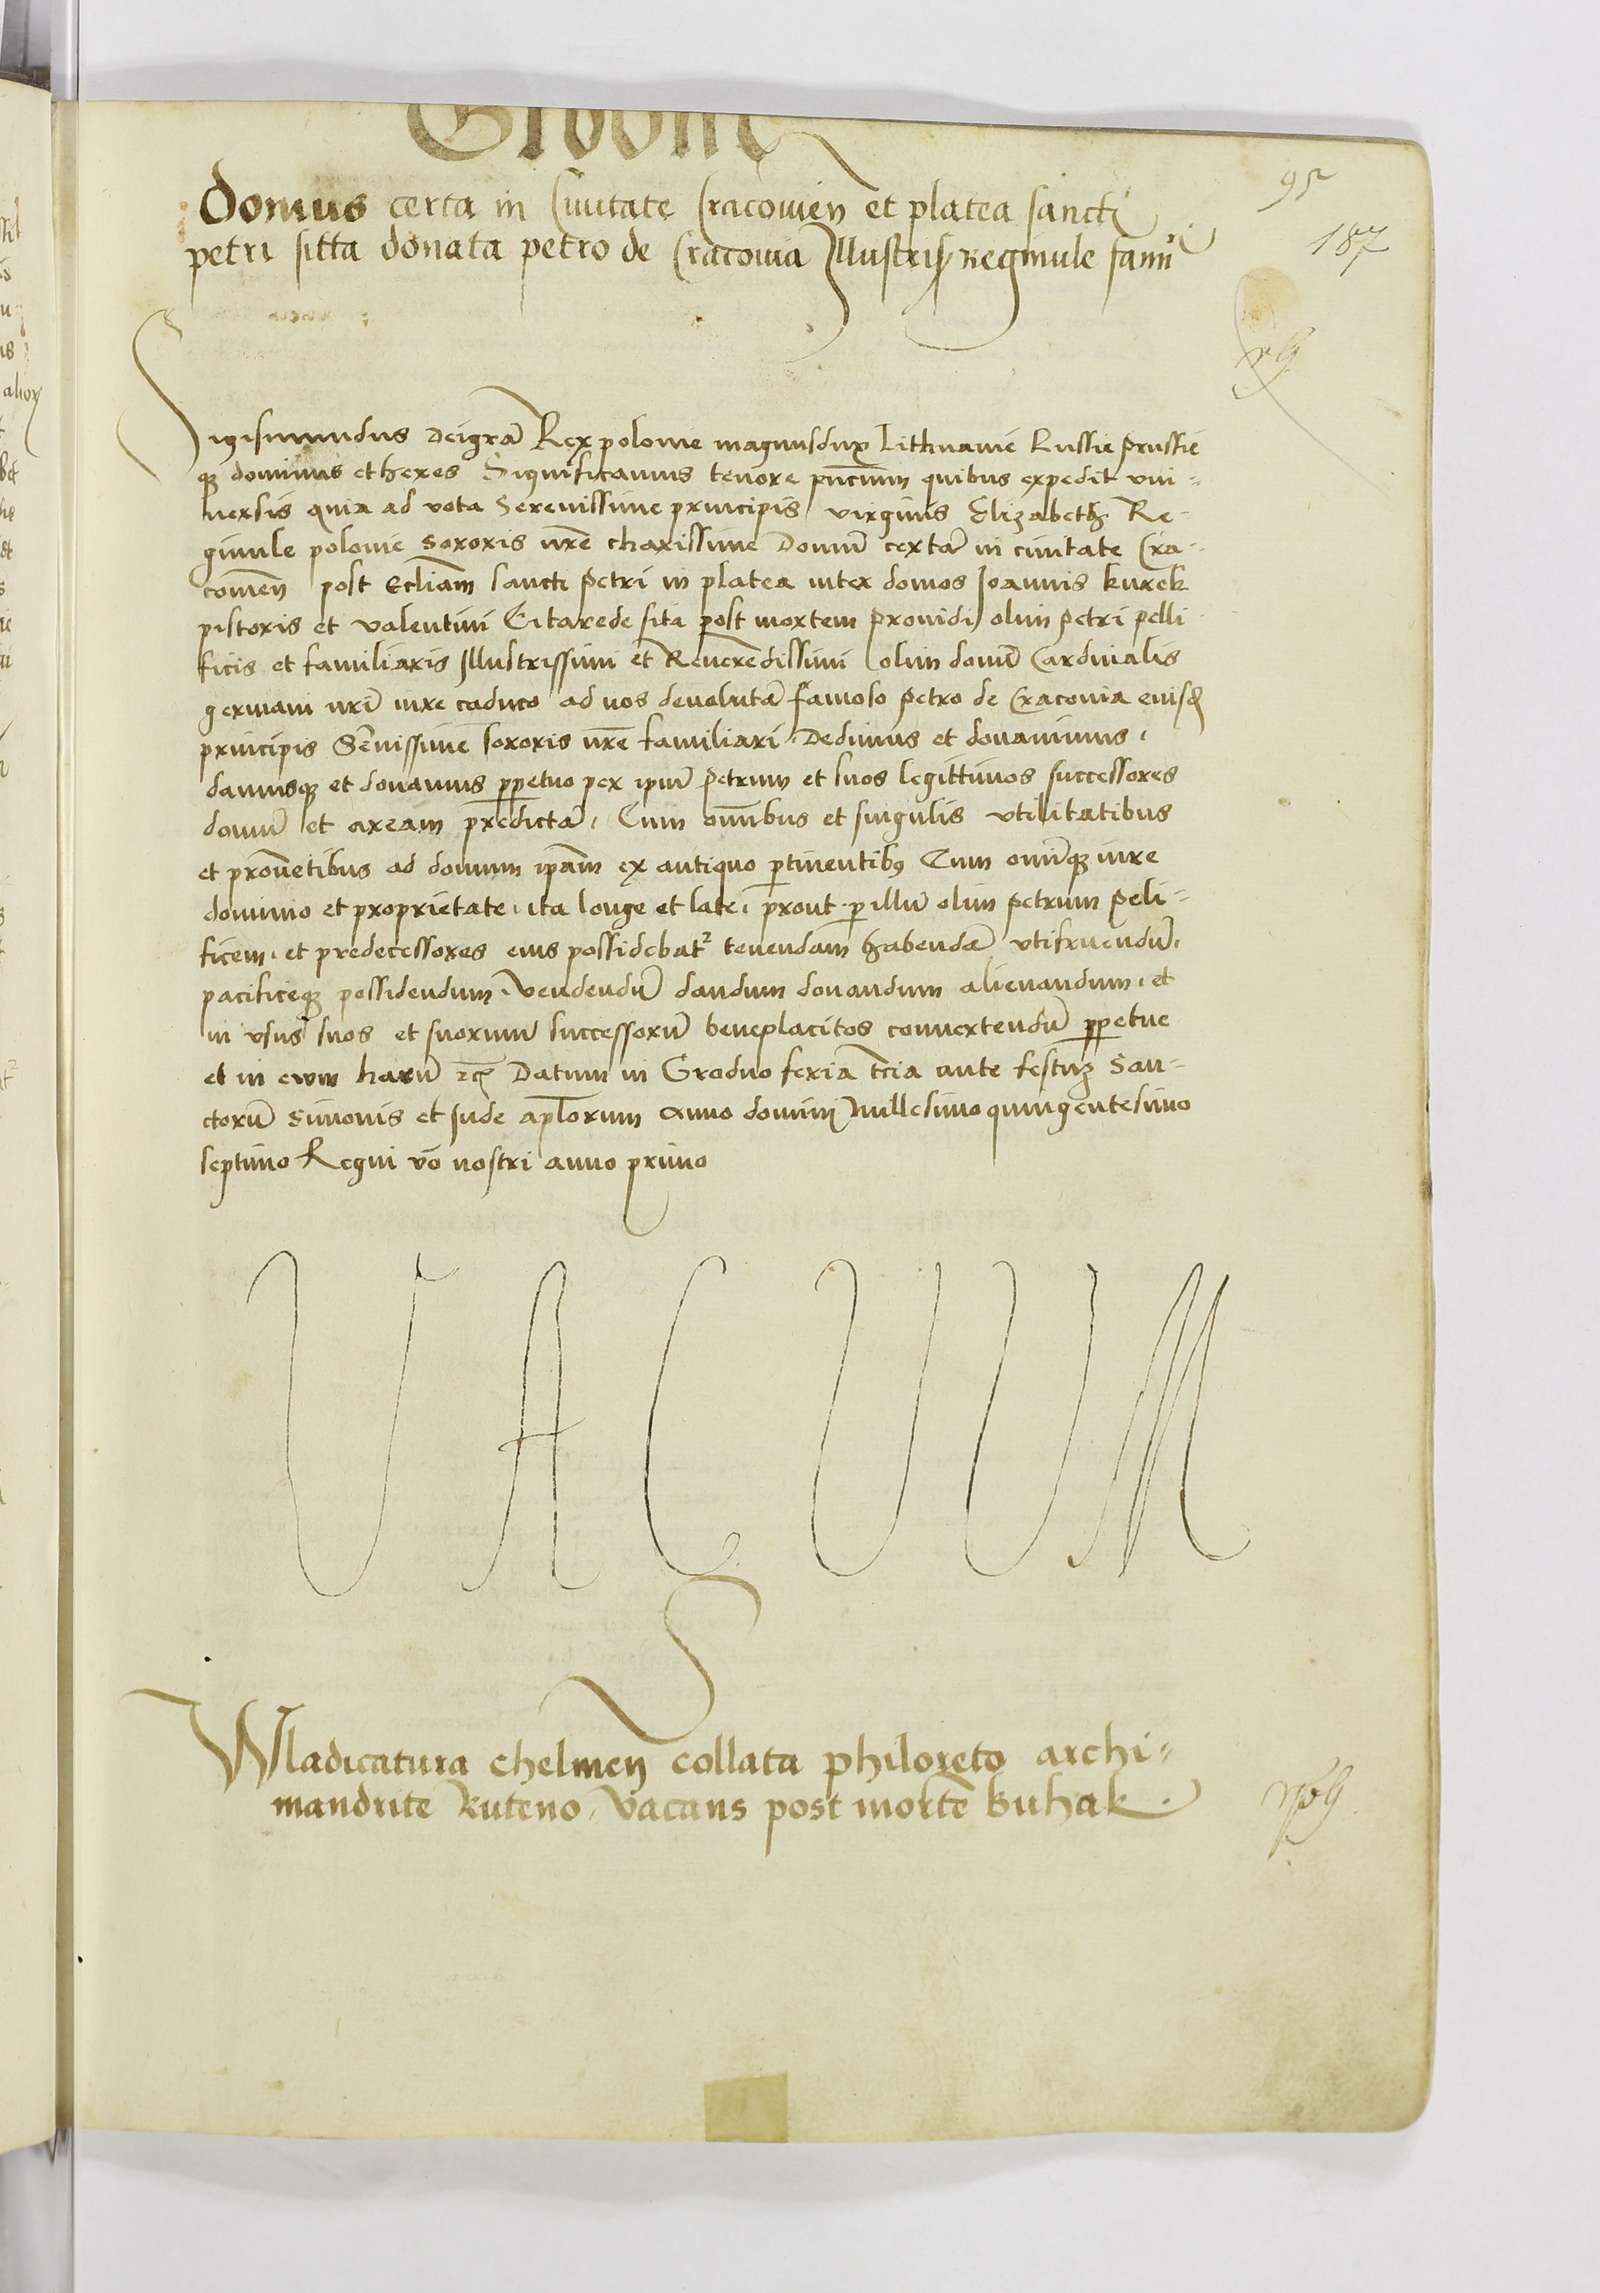 Grodne
95
Domus certa in Civitate Cracovien et platea sancti
187
petri sitta donata petro de Cracovia Illustris Reginule fami
Sigismundus Dei gra Rex polonie magnusdux Lithuanie Russie prussie
qz dominus et heres Significamus tenore pncium quibus expedit vni-
uersis quia ad vota Serenissime principis virginis Elizabeth Re-
ginule polonie Sororis nre charissime Domu certa in ciuitate Cra-
couien post Eccliam sancti Petri in platea inter domos Joannis kurek
pistoris et valentini Citarede sita post mortem prouidi olim petri pelli
ficis et familiaris Illustrissimi et Reuerendissimi olim domi Cardinalis
germani nri iure caduco ad nos deuoluta famoso petro de Cracouia eiusd
principis Sernissime sororis nre familiari Dedimus et donauimus
damusqz et donamus ppetuo per ipm Petrum et suos legittimos successores
domu et aream predicta, Cum omnibus et singulis vtilitatibus
et prouetibus ad domum ipam ex antiquo ptinentibus Cum omniqz iure
dominio et proprietate, ita longe et late, prout p illu olim petrum peli-
ficem, et predecessores eius possidebat tenendam habenda vtifruendu,
pacificeqz possidendum, vendendu dandum donandum alienandum, et
in vsus suos et suorum successoru beneplacitos conuertendu ppetue
et in ewm haru etc Datum in Grodno feria tcia ante festuz San-
ctoru Simonis et Jude aplorum Anno domini millesimo quingentesimo
septimo Regni vo nostri anno primo
VACUUM
Wladicatura Chelmen collata philoreto archi-
mandrite Ruteno, vacans post morte kuhak.